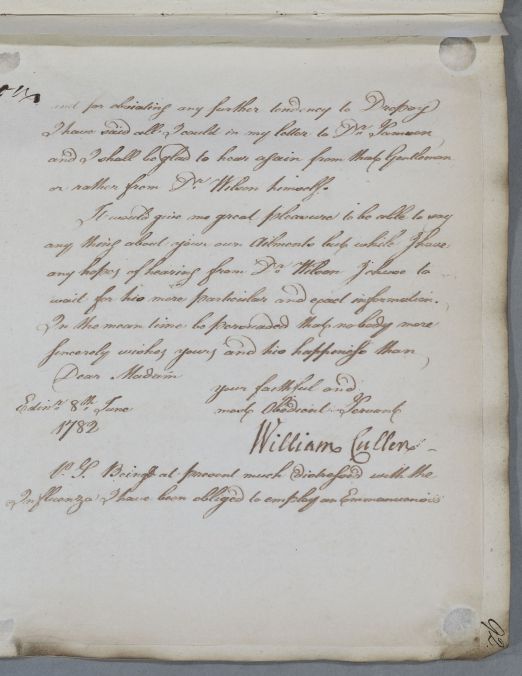 and for obviating any further tendency to Dropsy
I have said all I could in my letter to Dr.
and I shall be glad to hear again from that Gentleman
or rather from Dr Wilson himself.
It would give me great pleasure to be able to say
any thing about your own Ailments but while I have
any hopes of hearing from Dr. Wilson I chuse to
wait for his more particular and exact information.
In the mean time be perswaded that nobody more
sincerely wishes yours and his happiness than
Dear Madam
your faithful and
Edinr. 8th. June most Obedient Servant
1782
William Cullen
P.S. Being at present much distress'd with the
Influenza I have been obliged to employ an Emmanuensis